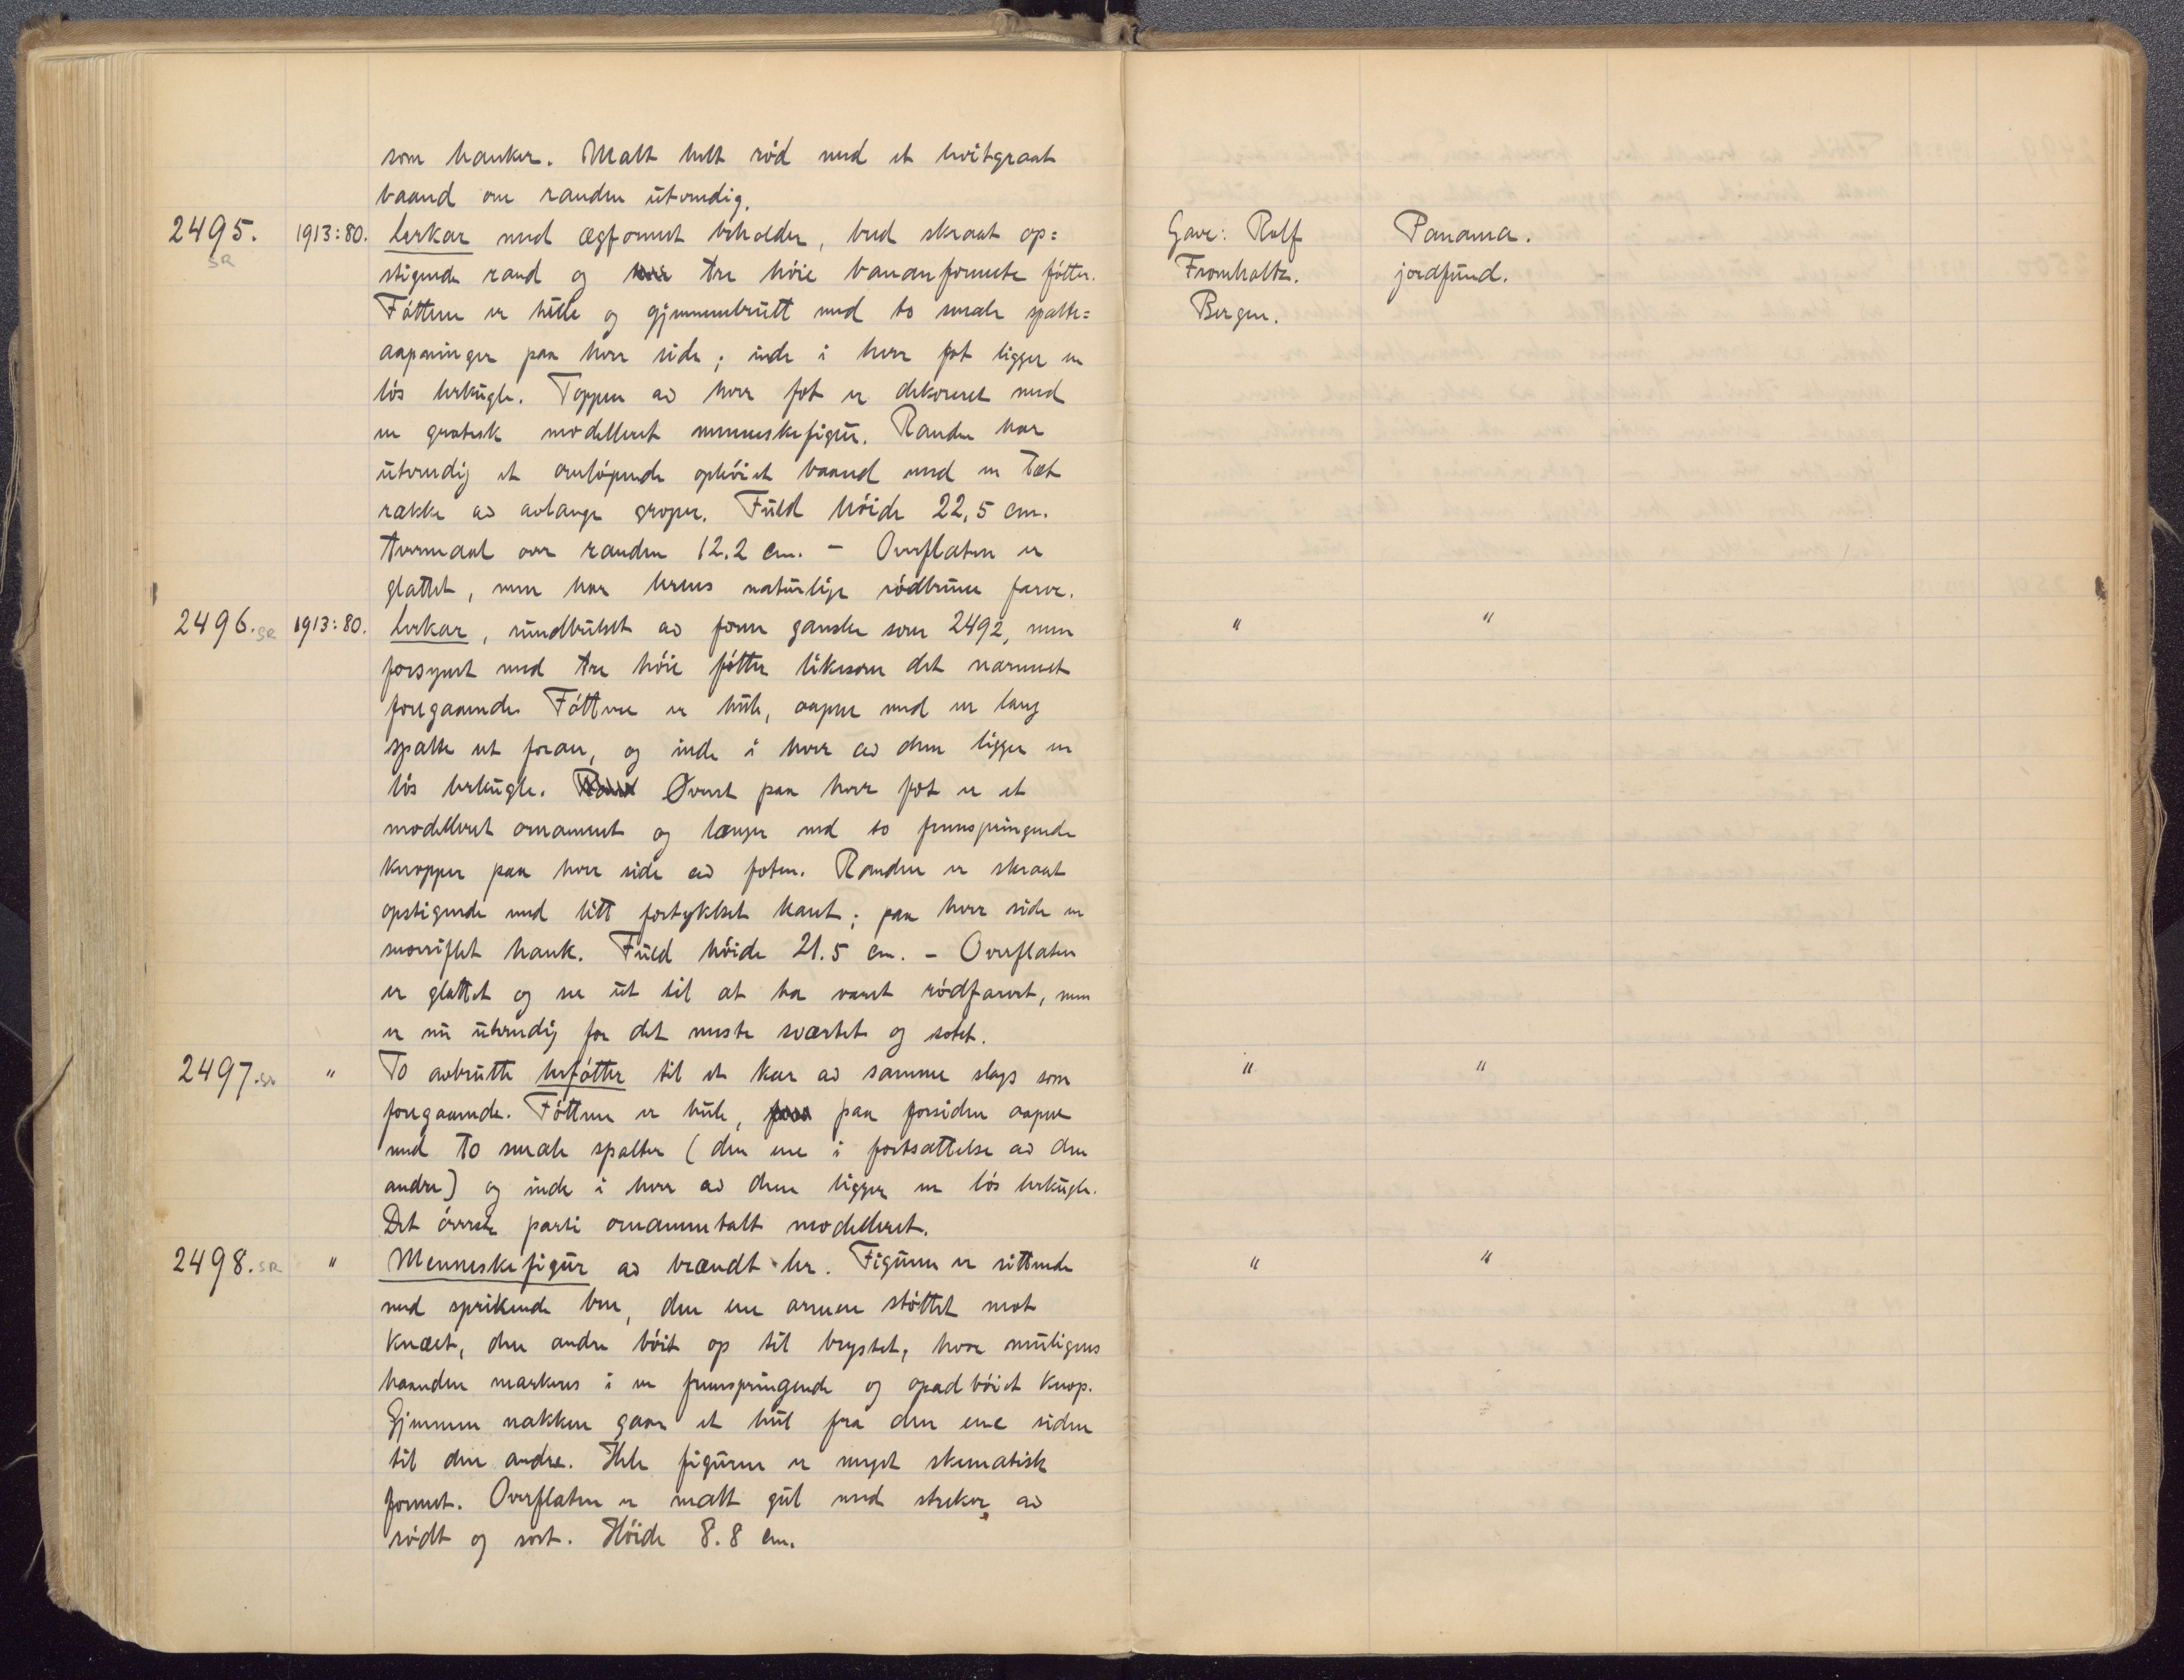 som hanker. Malt helt rød med et hvitgraat
baand om randen utvendig.
2495. SA 1913:80. Lerkar med egformet beholder, bred skraat op=
stigende rand og høie tre høie bananformete føtter.
Føttene er hule og gjennembrutt med to smale spalte=
aapninger paa hver side; inde i hver fot ligger en
løs lerkugle. Toppen av hver fot er dekorert med
en grotesk modellert menneskefigur. Randen har
utvendig et omløpende ophøiet baand med en tæt
række av avlange groper. Fuld høide 22,5 cm.
Tvermaal over randen 12.2 cm. – Overflaten er
glattet, men har lerets naturlige rødbrune farve.
Gave: Rolf
Fromholtz.
Bergen.
Panama.
jordfund.
2496. SA 1913:80. Lerkar, rundbuket av form ganske som 2492, men
forsynet med tre høie føtter likesom det nærmest
foregaaende. Føttene er hule, aapne med en lang
spalte ut foran, og inde i hver av dem ligger en
løs lerkugle. Øverst paa hver fot er et
modellert ornament og længer ned to fremspringende
knopper paa hver side av foten. Randen er skraat
opstigende med litt fortykket kant; paa hver side en
snorriflet hank. Fuld høide 21.5 cm. – Overflaten
er glattet og ser ut til at ha været rødfarvet, men
er nu utvendig for det meste sværtet og sotet.
" "
2497. SA " To avbrutte lerføtter til et kar av samme slags som
foregaaende. Føttene er hule, paa forsiden aapne
med to smale spalter (den ene i fortsættelse av den
andre) og inde i hver av dem ligger en løs lerkugle.
Det øverste parti ornamentalt modellert.
" "
2498. SA " Menneskefigur av brændt ler. Figuren er sittende
med sprikende ben, den ene armen støttet mot
knæet, den andre bøit op til brystet, hvor muligens
haanden markeres i en fremspringende og opad bøiet knop.
Gjennem nakken gaar et hul fra den ene siden
til den andre. Hele figuren er meget skematisk
formet. Overflaten er malt gul med streker av
rødt og sort. Høide 8.8 cm.
" "